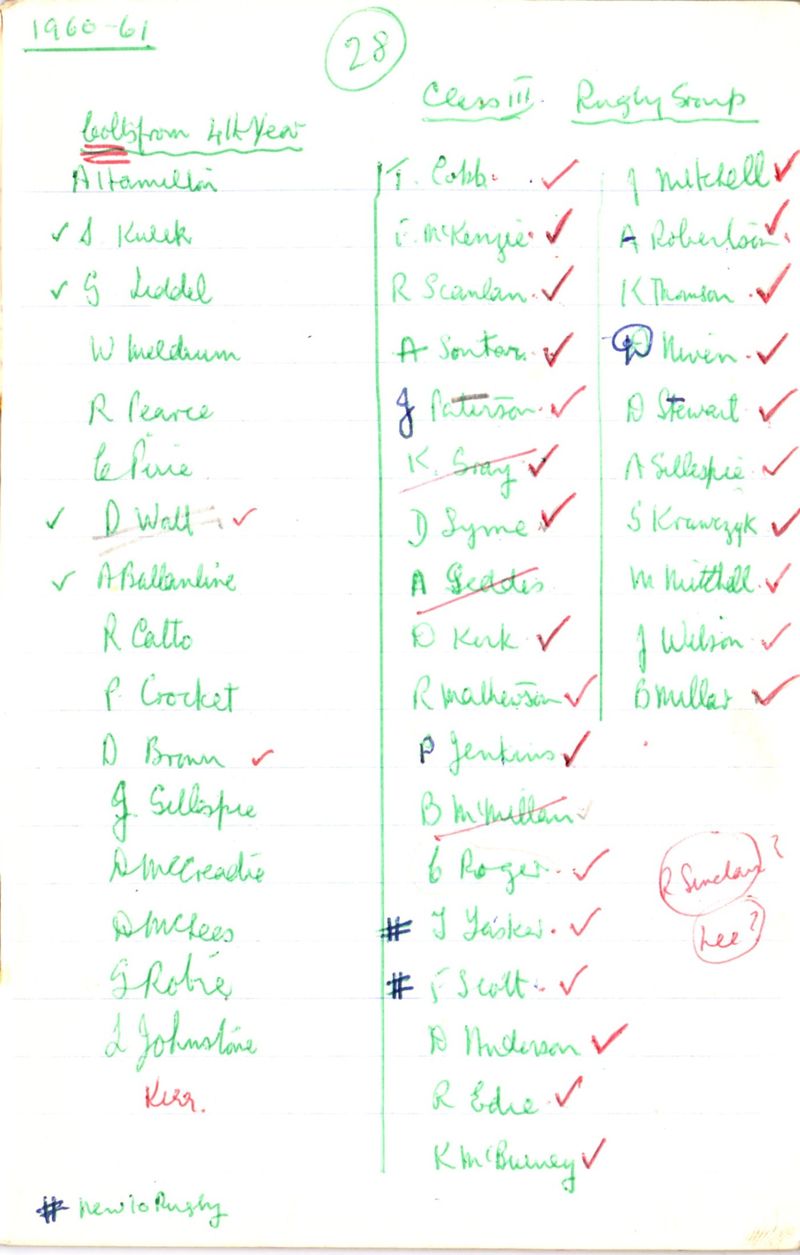 1960-61
28
Colts from 4th Year
A Hamilton
✓ S. Kulek
✓ G Liddel
W Meldrum
R Pearce
C Pirie
✓ D Watt ✓
✓ A Ballantine
R Catto
P. Crocket
D Brown ✓
J Gillespie
D McCreadie
D McLees
G Robie
L Johnstone
Kerr.
# New to Rugby
Class III. Rugby Group
T. Cobb. ✓
F. McKenzie. ✓
R Scanlan. ✓
A Soutar. ✓
J Paterson. ✓
K. Gray ✓
D Syme ✓
A Geddes
D Kerk ✓
R Mathewson ✓
P Jenkins ✓
B McMillan ✓
C Roger. ✓
# T Tasker. ✓
# F Scott. ✓
D Anderson ✓
R Edie ✓
K McBurney ✓
J Mitchell ✓
A Robertson. ✓
K Thomson ✓
D Niven. ✓
D Stewart ✓
A Gillespie ✓
S Krawczyk ✓
M Mitchell. ✓
J Wilson ✓
B Millar ✓
R Sinclair ?
Lee ?